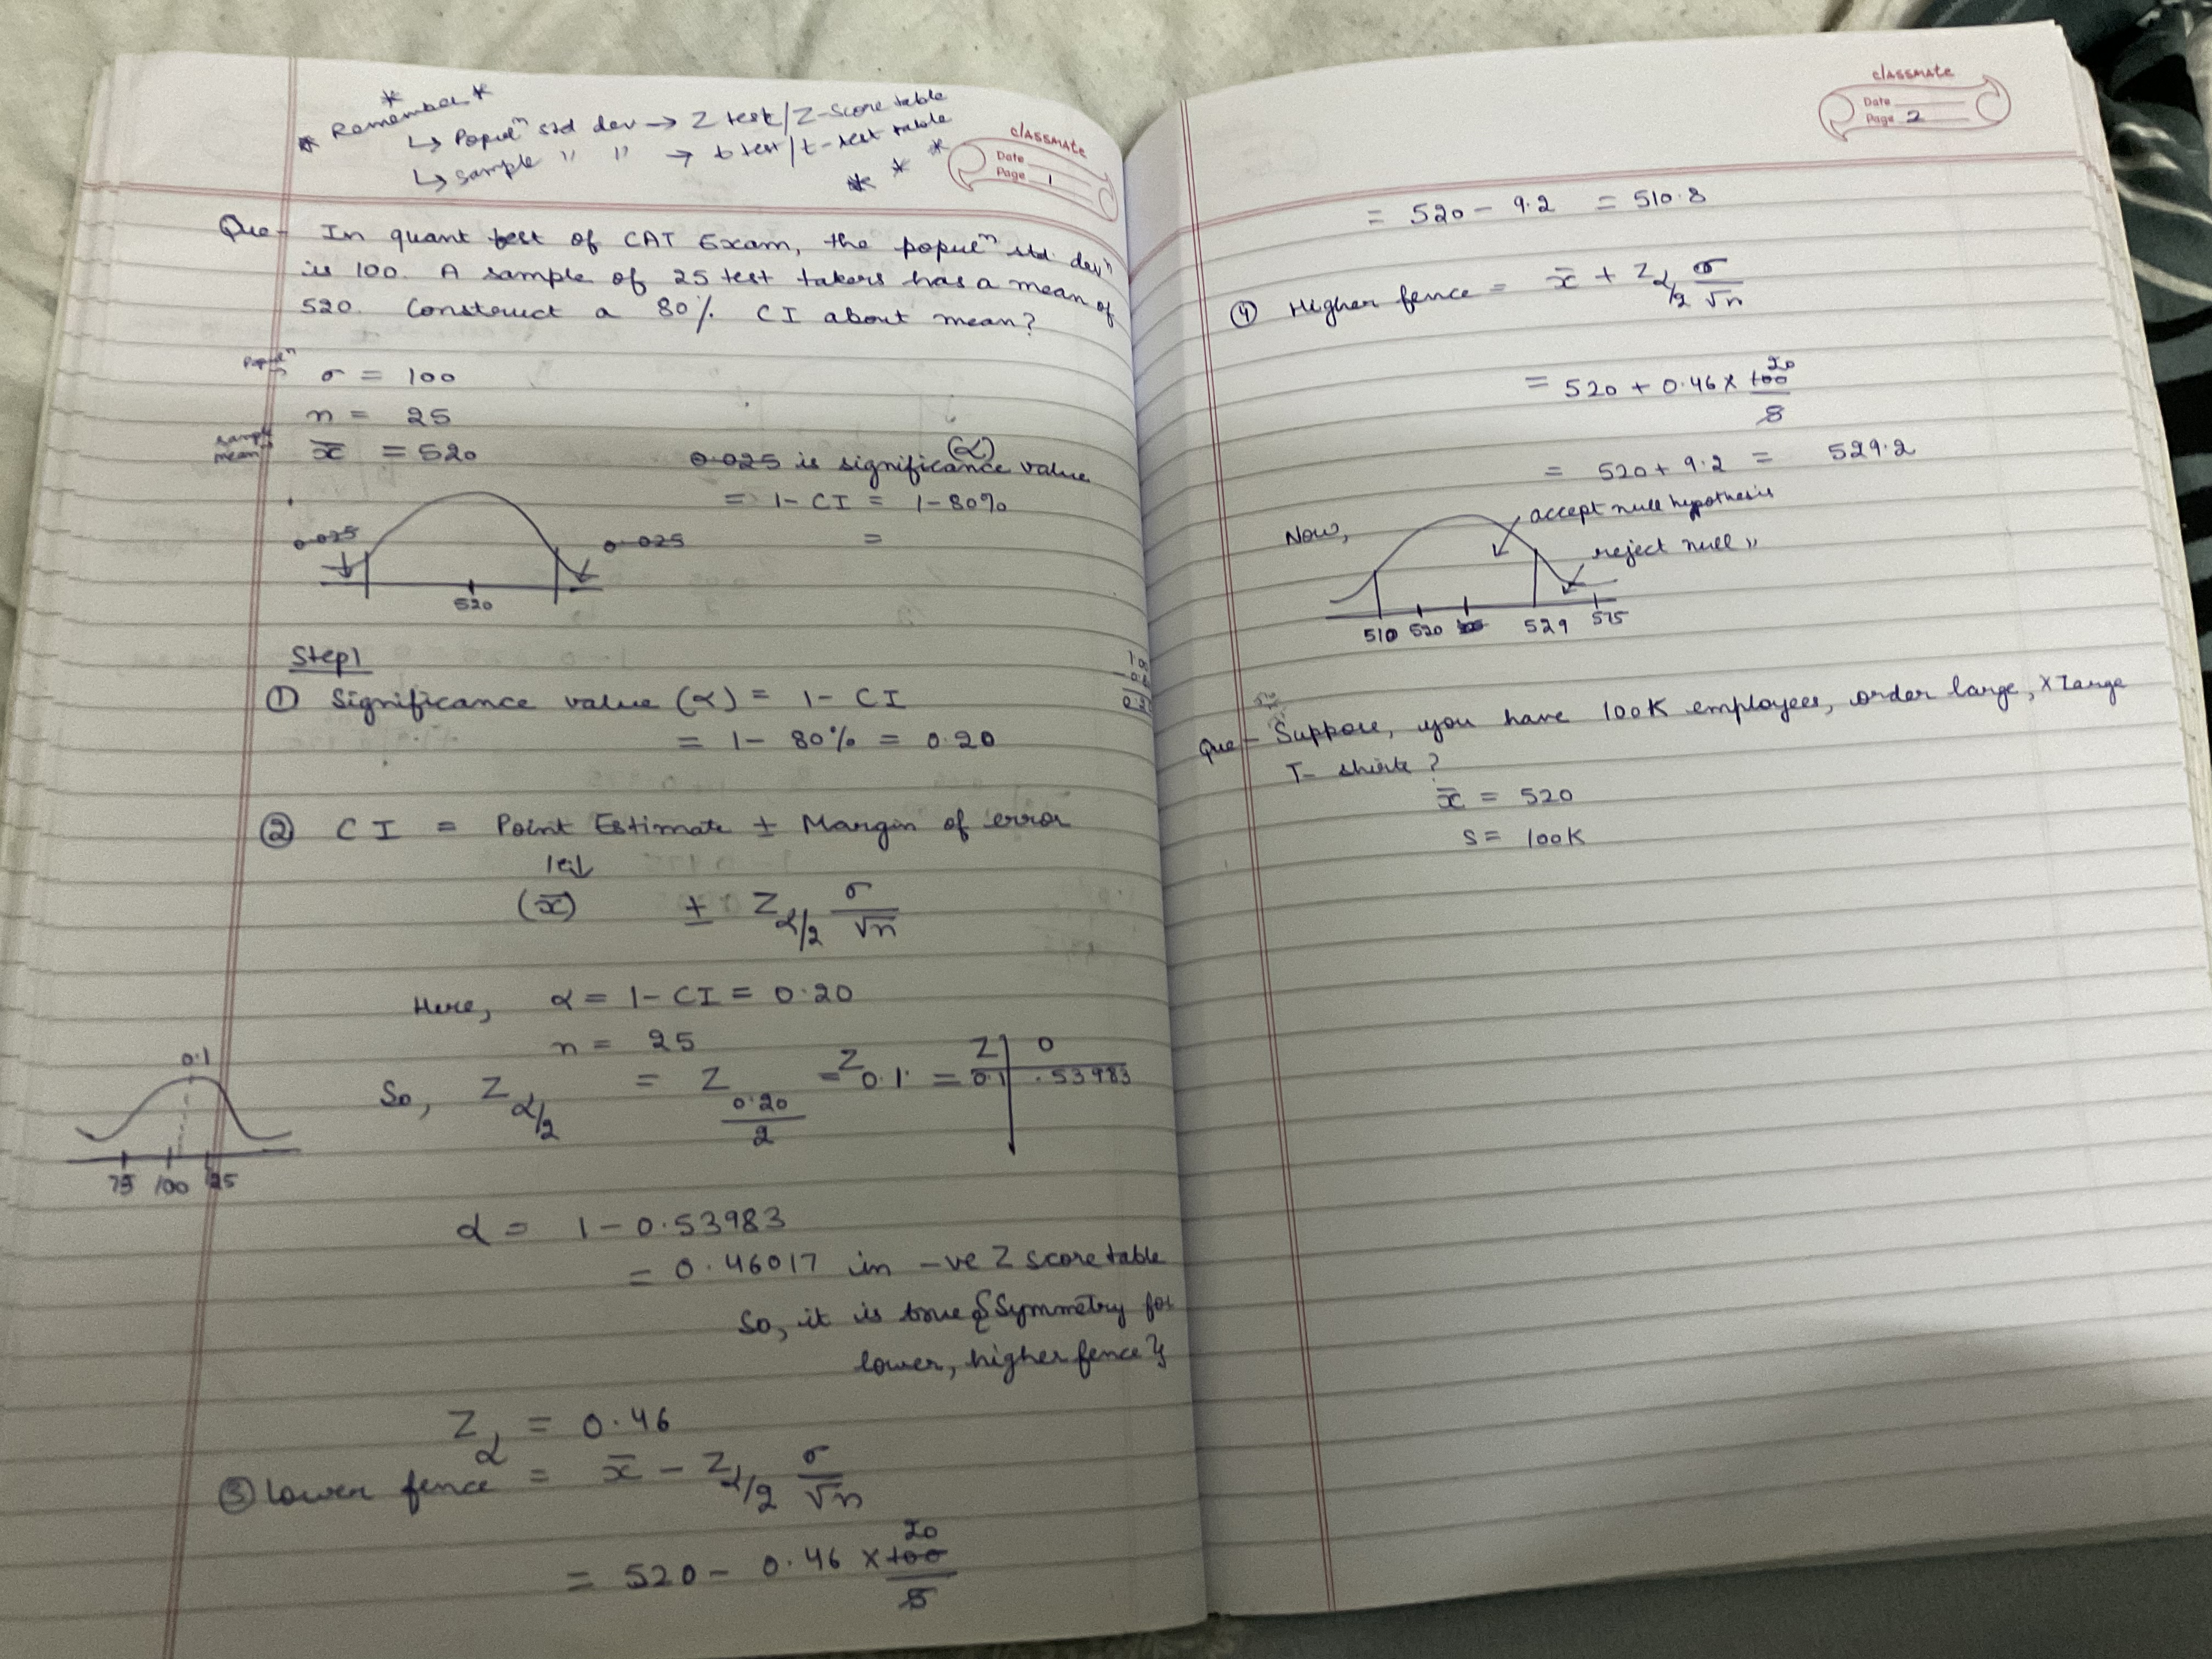 classmate
Date
Page 1
* Remember *
↳ Populⁿ std dev → Z test/Z-score table
↳ sample " " → t test/t-test table
* * *
Que- In quant test of CAT Exam, the populⁿ std. devⁿ
is 100. A sample of 25 test takers has a mean of
520. Construct a 80% CI about mean?
Populⁿ σ = 100
n = 25
sample mean x̄ = 520
0.025 is significance value (α)
= 1 - CI = 1 - 80%
=
0.025 0.025
520
Step 1
① Significance value (α) = 1 - CI
= 1 - 80% = 0.20
② CI = Point Estimate ± Margin of error
(x̄) ± Z α/2 σ/√n
Here, α = 1 - CI = 0.20
n = 25
So, Z α/2 = Z 0.20/2 = Z 0.1 = Z 0
0.1 .53983
0.1
75 100 125
α = 1 - 0.53983
= 0.46017 in -ve Z score table
So, it is true {Symmetry for
lower, higher fence}
Zα = 0.46
③ Lower fence = x̄ - Z α/2 σ/√n
= 520 - 0.46 × 100/5 20
classmate
Date
Page 2
= 520 - 9.2 = 510.8
④ Higher fence = x̄ + Z α/2 σ/√n
= 520 + 0.46 × 100/5 20
= 520 + 9.2 = 529.2
Now,
accept null hypothesis
reject null "
510 520 529 575
Que - Suppose, you have 100K employees, order large, x large
T- shirt?
x̄ = 520
S = 100K